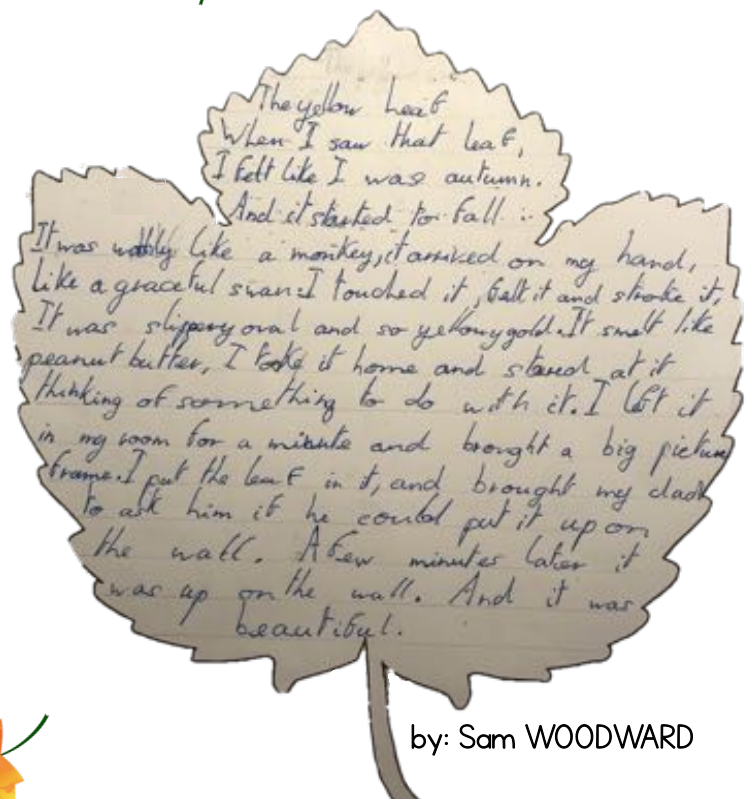 The yellow leaf
When I saw that leaf,
I felt like I was autumn.
And it started to fall :.
It was wobbly like a monkey, it arrived on my hand,
like a graceful swan. I touched it, felt it and stroke it,
It was slippery oval and so yellowy gold. It smelt like
peanut butter, I took it home and stared at it
thinking of something to do with it. I left it
in my room for a minute and brought a big picture
frame. I put the leaf in it, and brought my dad
to ask him if he could put it up on
the wall. A few minutes later it
was up on the wall. And it was
beautiful.
by: Sam WOODWARD